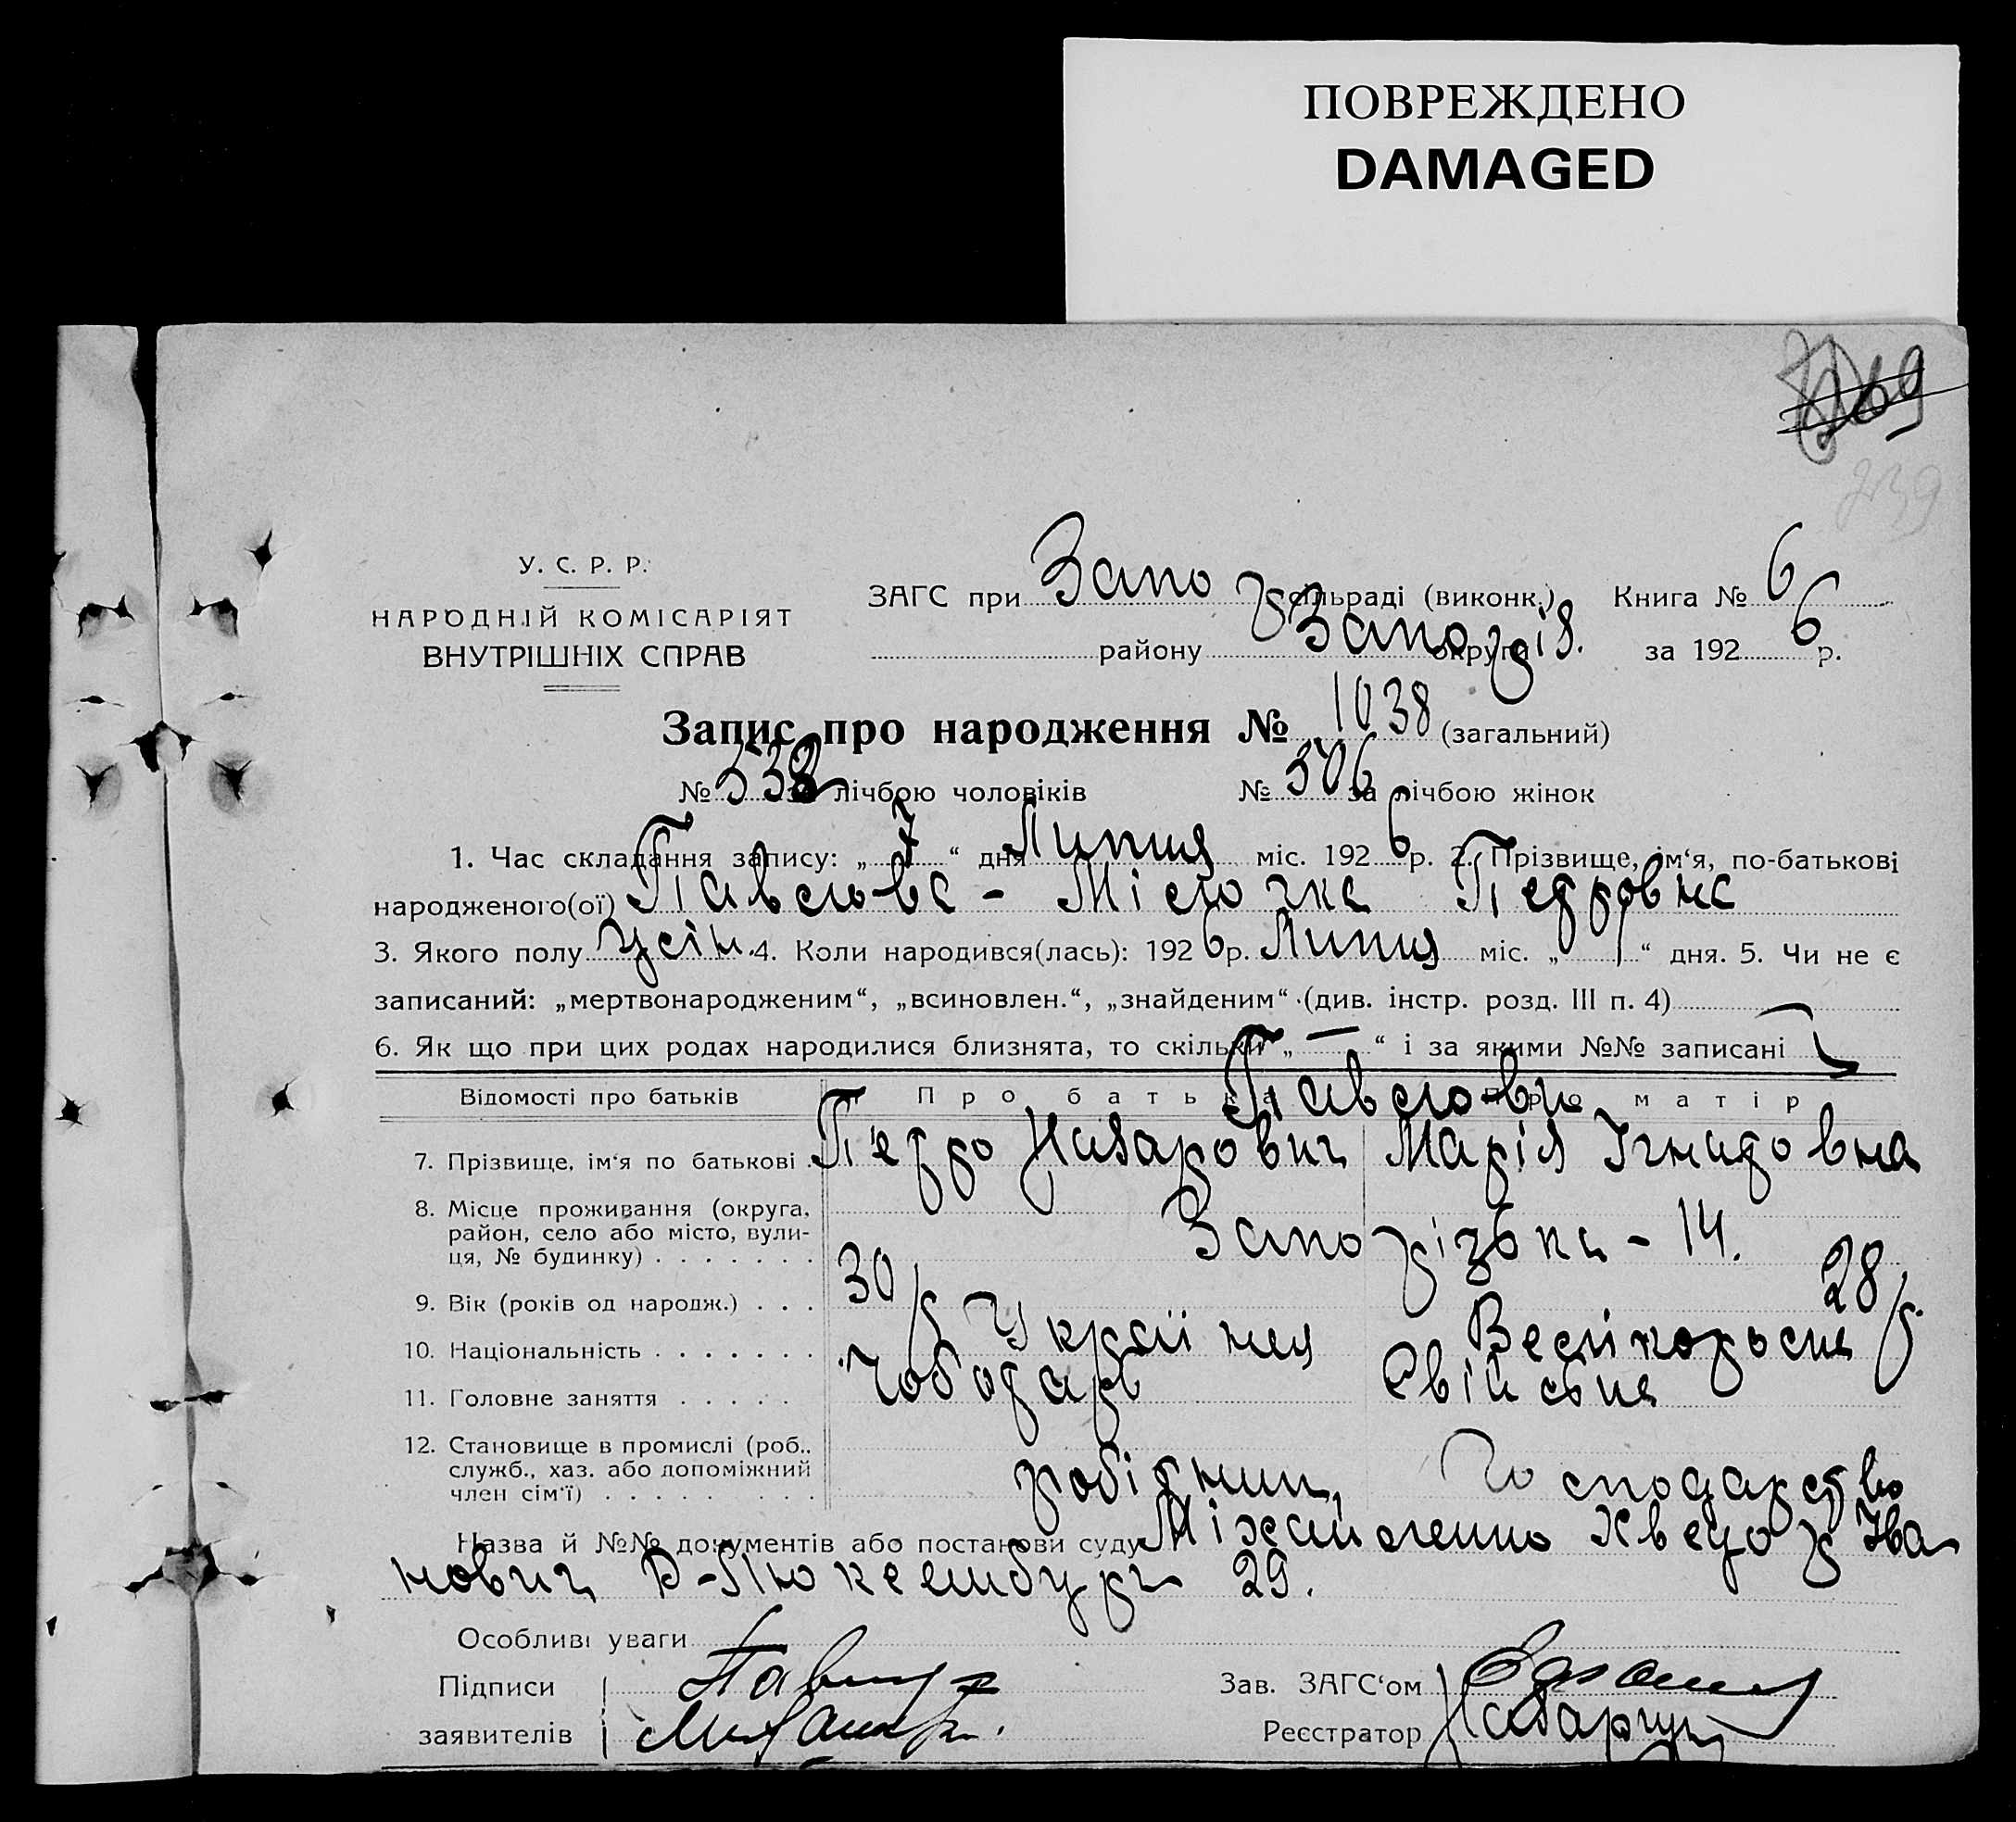 ПОВРЕЖДЕНО
DAMAGED
239
У. С. Р. Р.
НАРОДНІЙ КОМІСАРІЯТ
ВНУТРІШНІХ СПРАВ
ЗАГС при Запо сільраді (виконк.) Книга № 6
району Запоріз. округи за 1926 р.
Запис про народження № 1038 (загальний)
№ 532 за лічбою чоловіків № 506 за лічбою жінок
1. Час складання запису: „ 7 “ дня Липця міс. 1926 р. 2. Прізвище, ім‘я, по-батькові
народженого(ої) Павлова - Мілочка Петровна
3. Якого полу 4. Коли народився(лась): 1926 р. Липця міс. „ 1 “ дня. 5. Чи не є
записаний: „мертвонародженим“, „всиновлен.“, „знайденим“ (див. інстр. розд. III п. 4)
6. Як що при цих родах народилися близнята, то скільки „ — “ і за якими №№ записані
Відомості про батьків Про батька Про матір
Павлови
7. Прізвище, ім‘я по батькові Петро Назарович Марія Ігнатовна
8. Місце проживання (округа,
район, село або місто, вули-
ця, № будинку) Запорізька - 14.
9. Вік (років од народж.) 30 р 28 р.
10. Національність Українец Велікоросна
11. Головне заняття Чоботарь Свійська
12. Становище в промислі (роб.,
служб., хаз. або допоміжний
член сім‘ї) робітник Господарство
Назва й №№ документів або постанови суду Хведор Іва
нович Р-Люксембург 29.
Особливі уваги
Підписи
заявителів
Зав. ЗАГС‘ом
Реєстратор